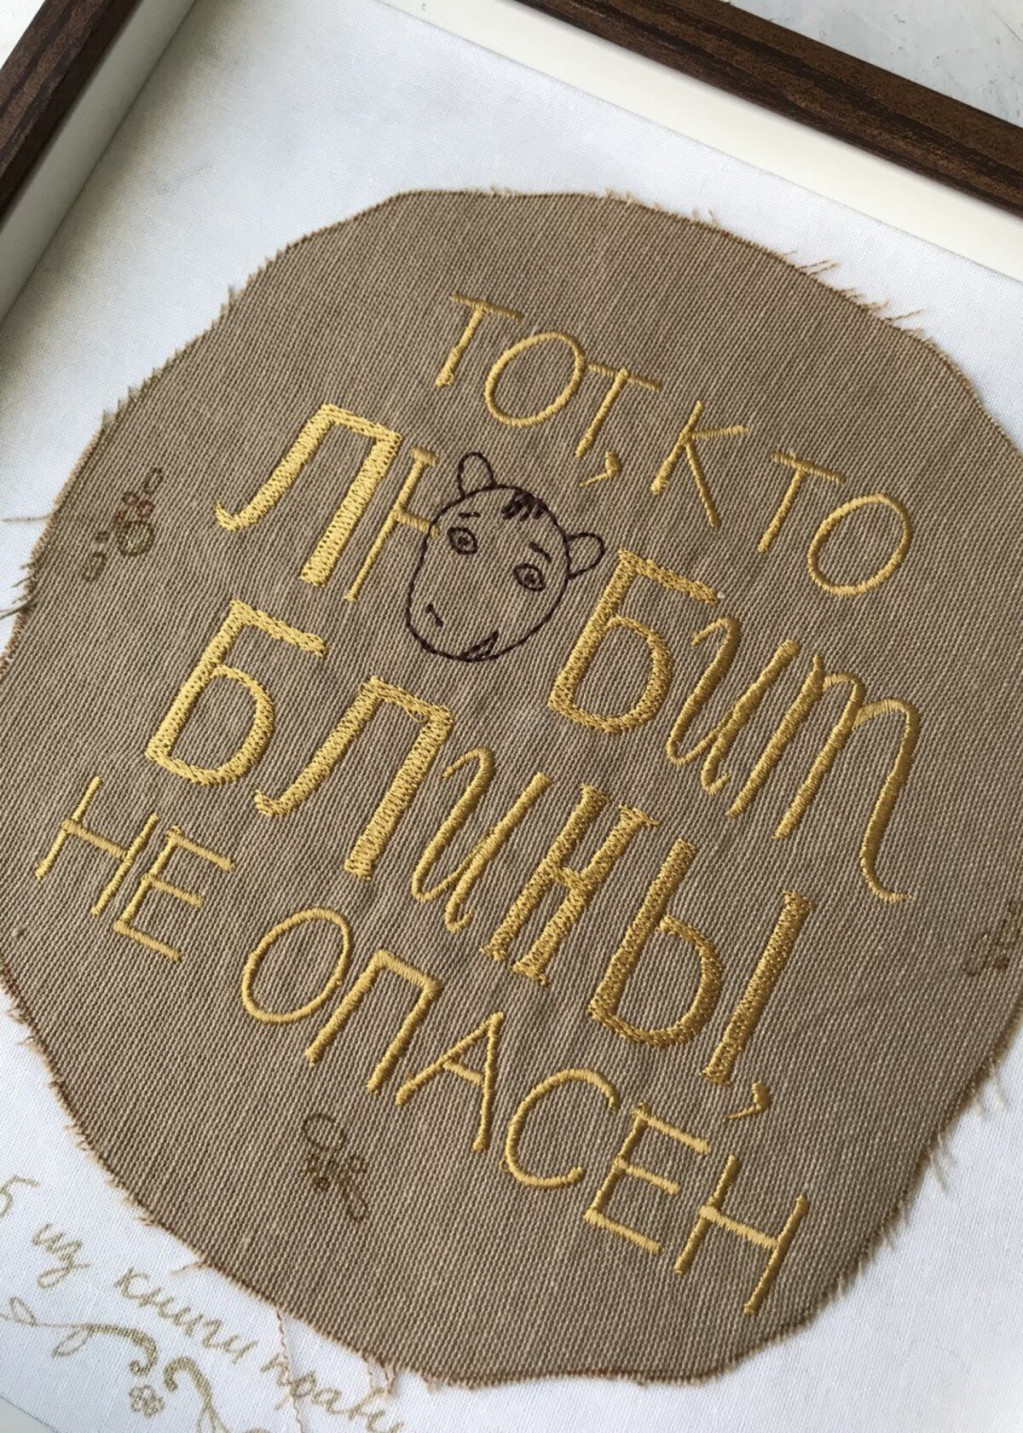 ТОТ, КТО
ЛЮБит
БЛиНЫ,
НЕ ОПАСЕН
5 из книги